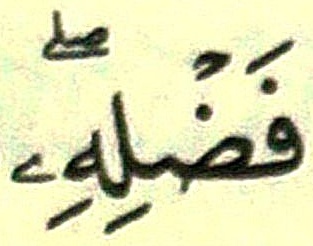 فَضْلِهِۦۖ